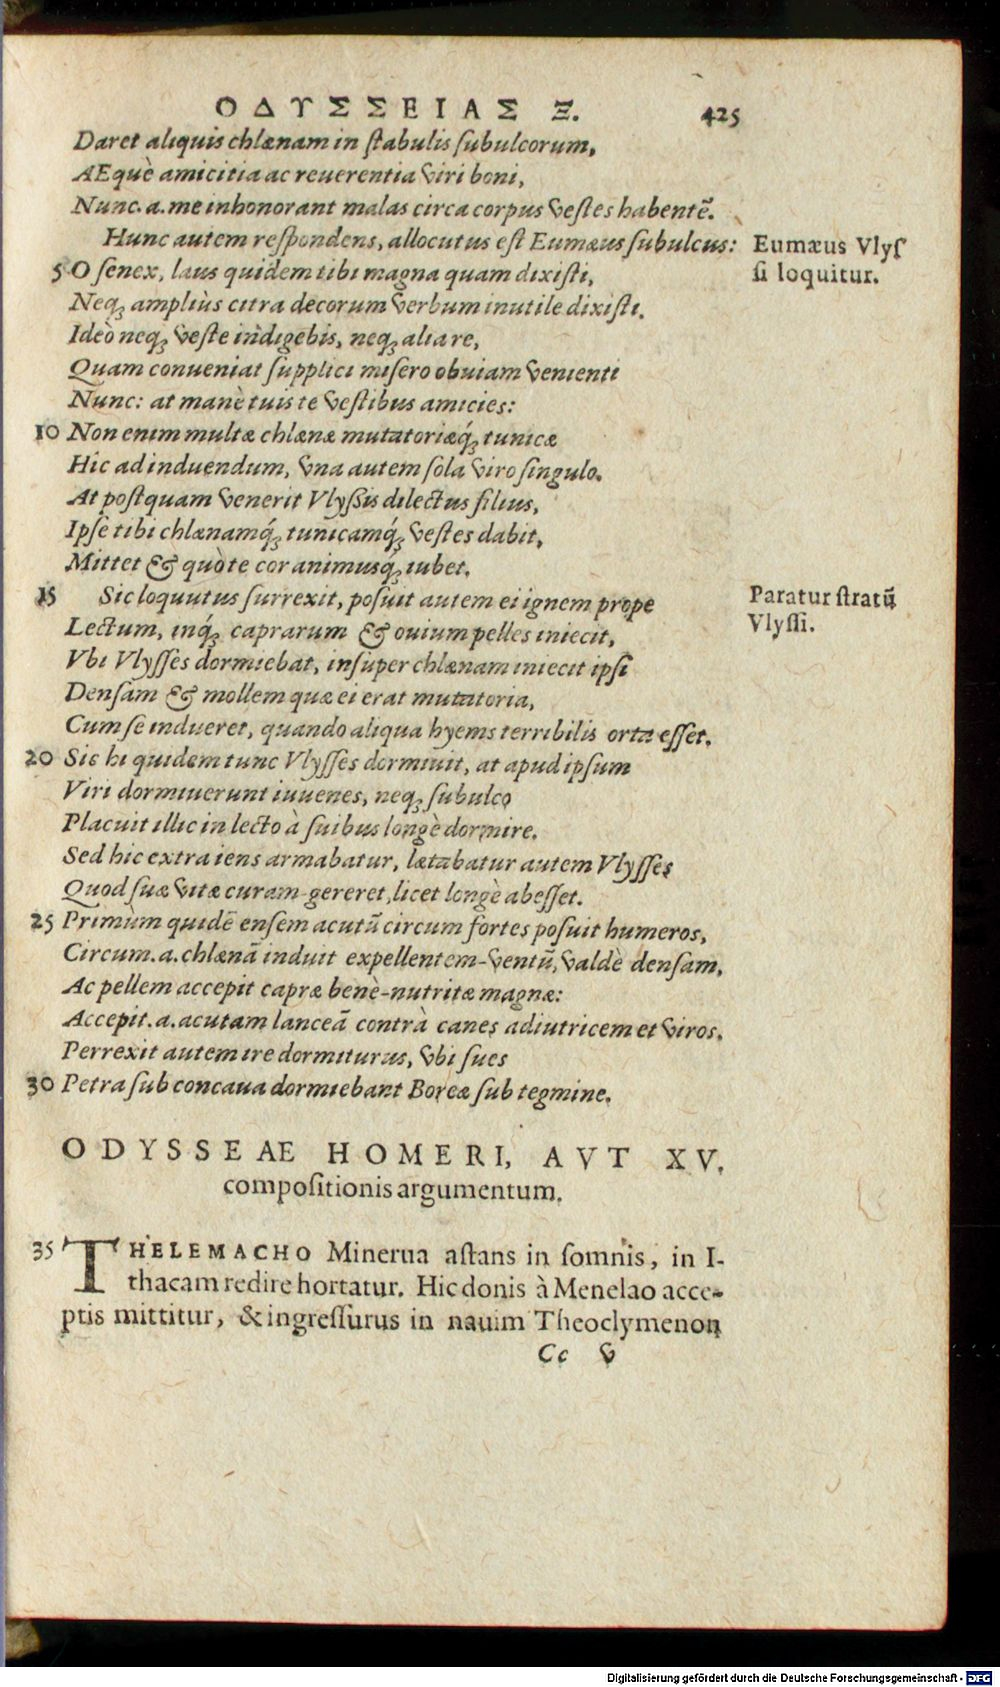 ΟΔΥΣΣΕΙΑΣ Ξ. 425
Daret aliquis chlænam in ſtabulis ſubulcorum,
AEquè amicitia ac reuerentia viri boni,
Nunc.a.me inhonorant malas circa corpus veſtes habentẽ.
Hunc autem reſpondens, allocutus eſt Eumæus ſubulcus: Eumæus Vlyſ
5 O ſenex, laus quidem tibi magna quam dixiſti, ſi loquitur.
Neq; ampliùs citra decorum verbum inutile dixiſti.
Ideò neq; veſte indigebis, neq; alia re,
Quam conueniat ſupplici miſero obuiam venienti
Nunc: at manè tuis te veſtibus amicies:
10 Non enim multæ chlænæ mutatoriæq́; tunicæ
Hic ad induendum, vna autem ſola viro ſingulo.
At poſtquam venerit Vlyſſis dilectus filius,
Ipſe tibi chlænamq́; tunicamq́; veſtes dabit,
Mittet & quò te cor animusq; iubet.
15 Sic loquutus ſurrexit, poſuit autem ei ignem prope Paratur ſtratũ
Lectum, inq́; caprarum & ouium pelles iniecit, Vlyſſi.
Vbi Vlyſſes dormiebat, inſuper chlænam iniecit ipſi
Denſam & mollem quæ ei erat mutatoria,
Cum ſe indueret, quando aliqua hyems terribilis orta eſſet.
20 Sic hi quidem tunc Vlyſſes dormiuit, at apud ipſum
Viri dormiuerunt iuuenes, neq; ſubulco
Placuit illic in lecto à ſuibus longè dormire.
Sed hic extra iens armabatur, lætabatur autem Vlyſſes
Quod ſuæ vitæ curam gereret, licet longè abeſſet.
25 Primum quidẽ enſem acutũ circum fortes poſuit humeros,
Circum.a.chlænã induit expellentem-ventũ, valdè denſam,
Ac pellem accepit capræ benè-nutritæ magnæ:
Accepit.a.acutam lanceã contrà canes adiutricem et viros.
Perrexit autem ire dormiturus, vbi ſues
30 Petra ſub concaua dormiebant Boreæ ſub tegmine.
ODYSSEAE HOMERI, AVT XV.
compoſitionis argumentum.
35 THELEMACHO Minerua aſtans in ſomnis, in I-
thacam redire hortatur. Hic donis à Menelao acce-
ptis mittitur, & ingreſſurus in nauim Theoclymenon
Cc v
Digitalisierung gefördert durch die Deutsche Forschungsgemeinschaft - DFG